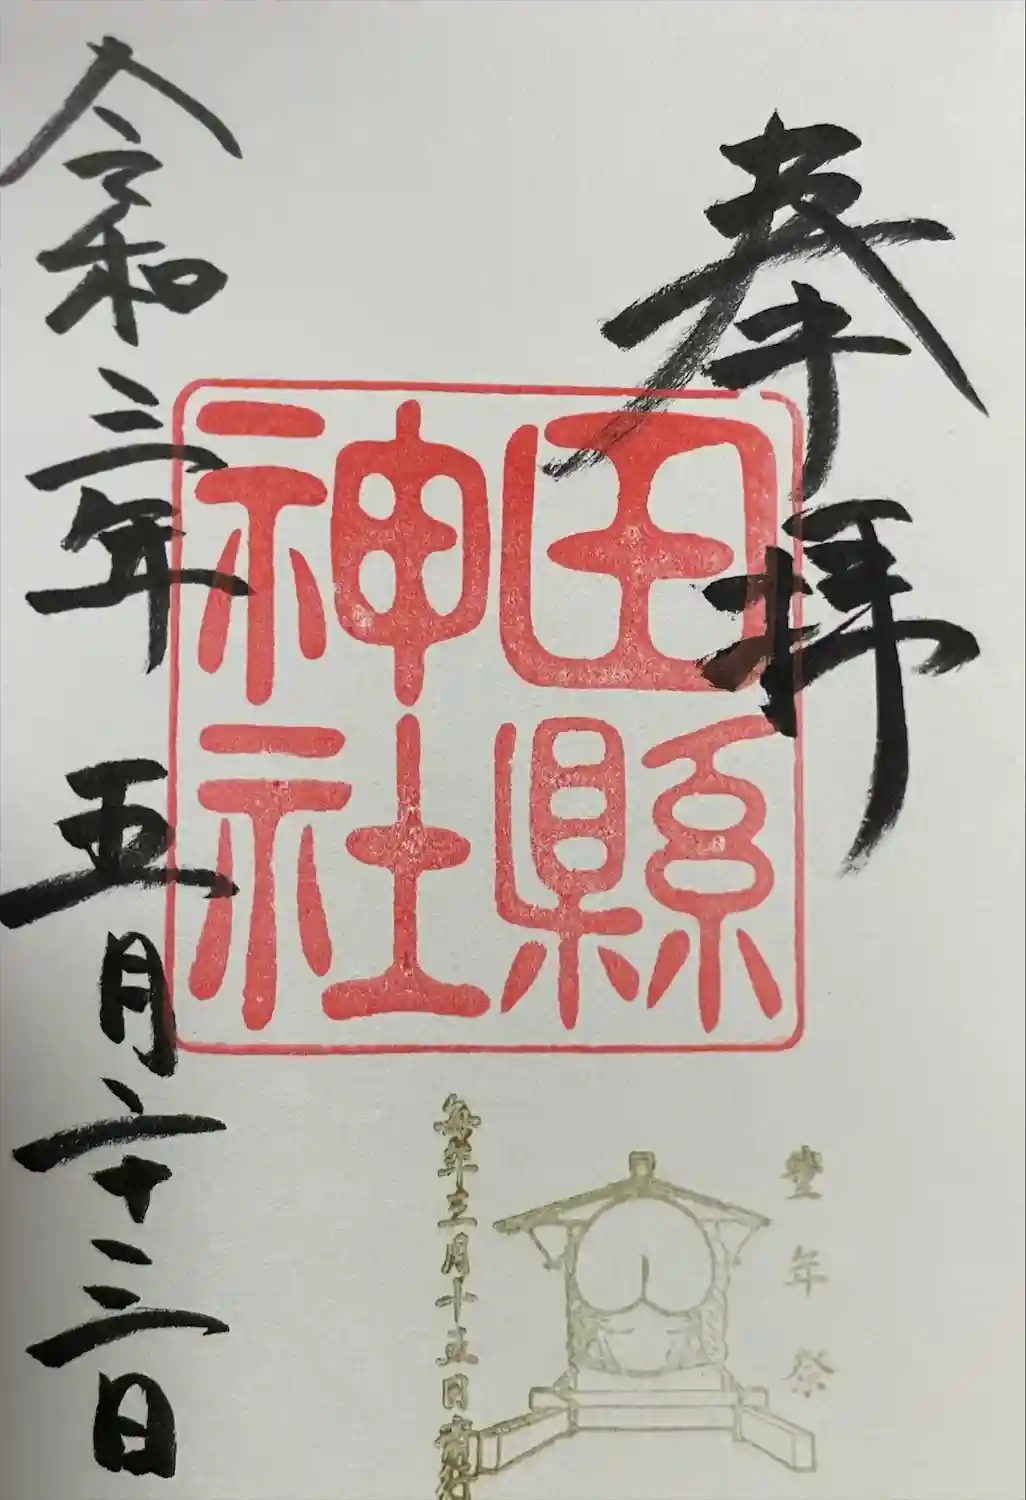 奉拝
田縣
神社
令和三年 五月二十三日
豊年祭
毎年三月十五日斎行